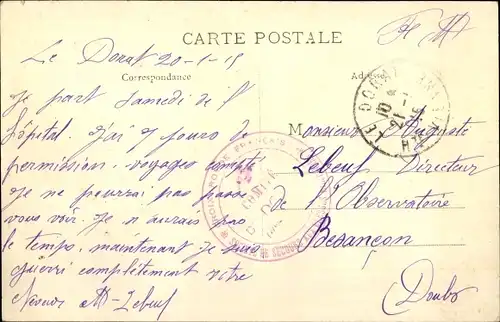 CARTE POSTALE
F M
Le Dorat 20-1-15
Correspondance
Je part Samedi de l'
hôpital. j'ai 7 jours de
permission, voyages compris
je ne pourrai pas passer
vous voir. Je n'aurais pas
le temps, maintenant je suis
guerri complètement votre
Neveu A Lebeuf
Monsieur Auguste
Lebeuf Directeur
de l'Observatoire
Besançon
Doubs
LE DORAT
10
21-1
15